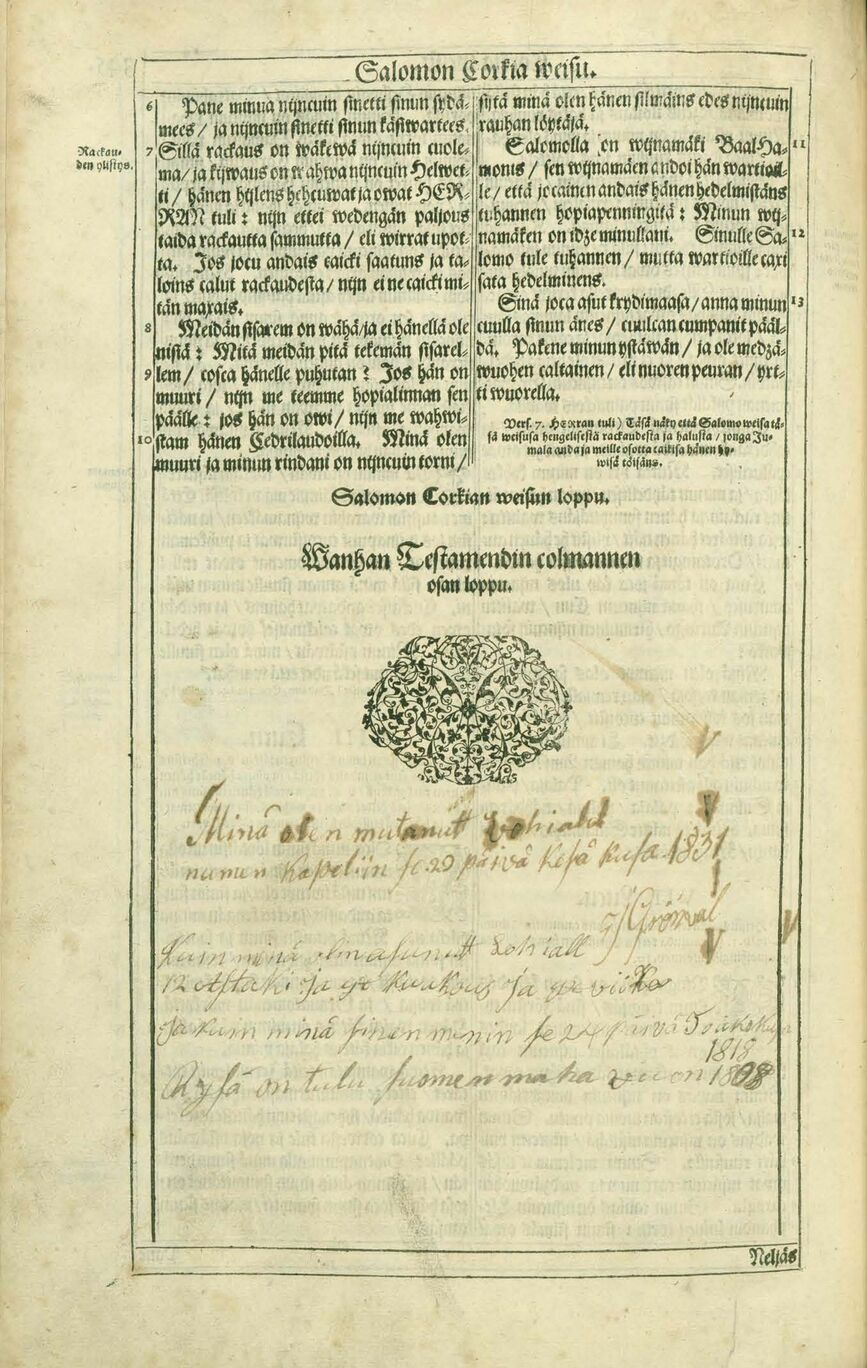 Salomon Corkia weisu.
6 Pane minua nijncuin sinetti sinun sydä-
mees / ja nijncuin sinetti sinun käsiwartees.
Rackau-
den ylistys.
7 Sillä rackaus on wäkewä nijncuin cuole-
ma / ja kijwaus on wahwa nijncuin Helwet-
ti / hänen hijlens hehcuwat ja owat HER-
RAN tuli : nijn ettei wedengän paljous
taida rackautta sammutta / eli wirrat upot-
ta. Jos jocu andais caicki saatuns ja ta-
loins calut rackaudesta / nijn ei ne caicki mi-
tän maxais.
8 Meidän sisarem on wähä / ja ei hänellä ole
nisiä : Mitä meidän pitä tekemän sisarel-
9 lem / cosca hänelle puhutan ? Jos hän on
muuri / nijn me teemme hopialinnan sen
päälle : jos hän on owi / nijn me wahwi-
10 stam hänen Cedrilaudoilla. Minä olen
muuri ja minun rindani on nijncuin torni /
sijtä minä olen hänen silmäins edes nijncuin
rauhan löytäjä.
Salomolla on wijnamäki BaalHa- 11
monis / sen wijnamäen andoi hän wartioil-
le / että jocainen andais hänen hedelmistäns
tuhannen hopiapenningitä : Minun wij-
namäken on idze minullani. Sinulle Sa- 12
lomo tule tuhannen / mutta wartioille caxi
sata hedelminens.
Sinä joca asut krydimaasa / anna minun 13
cuulla sinun änes / cuulcan cumpanit pääl-
dä. Pakene minun ystäwän / ja ole medzä-
wuohen caltainen / eli nuoren peuran / yrt-
ti wuorella.
Vers. 7. HERran tuli) Täsä näky että Salomo weisa tä-
sä weisusa hengelisestä rackaudesta ja halusta / jonga Ju-
mala anda ja meille osotta caikisa hänen hy-
wisä töisäns.
Salomon Corkian weisun loppu.
Wanhan Testamendin colmannen
osan loppu.
Minä olen mutanut Lohiald
numen Kapeliin se 29 päivä Kesä kusa 1831
Kuin minä olin asunutt Lohiall
12 Ajstaki ja 9 kuukous ja viiko
Ja kuin minä sinen menin se 24 päivä Toukokuu
1818
Rysä on tulu suomen maha vuon 1808
Neljäs